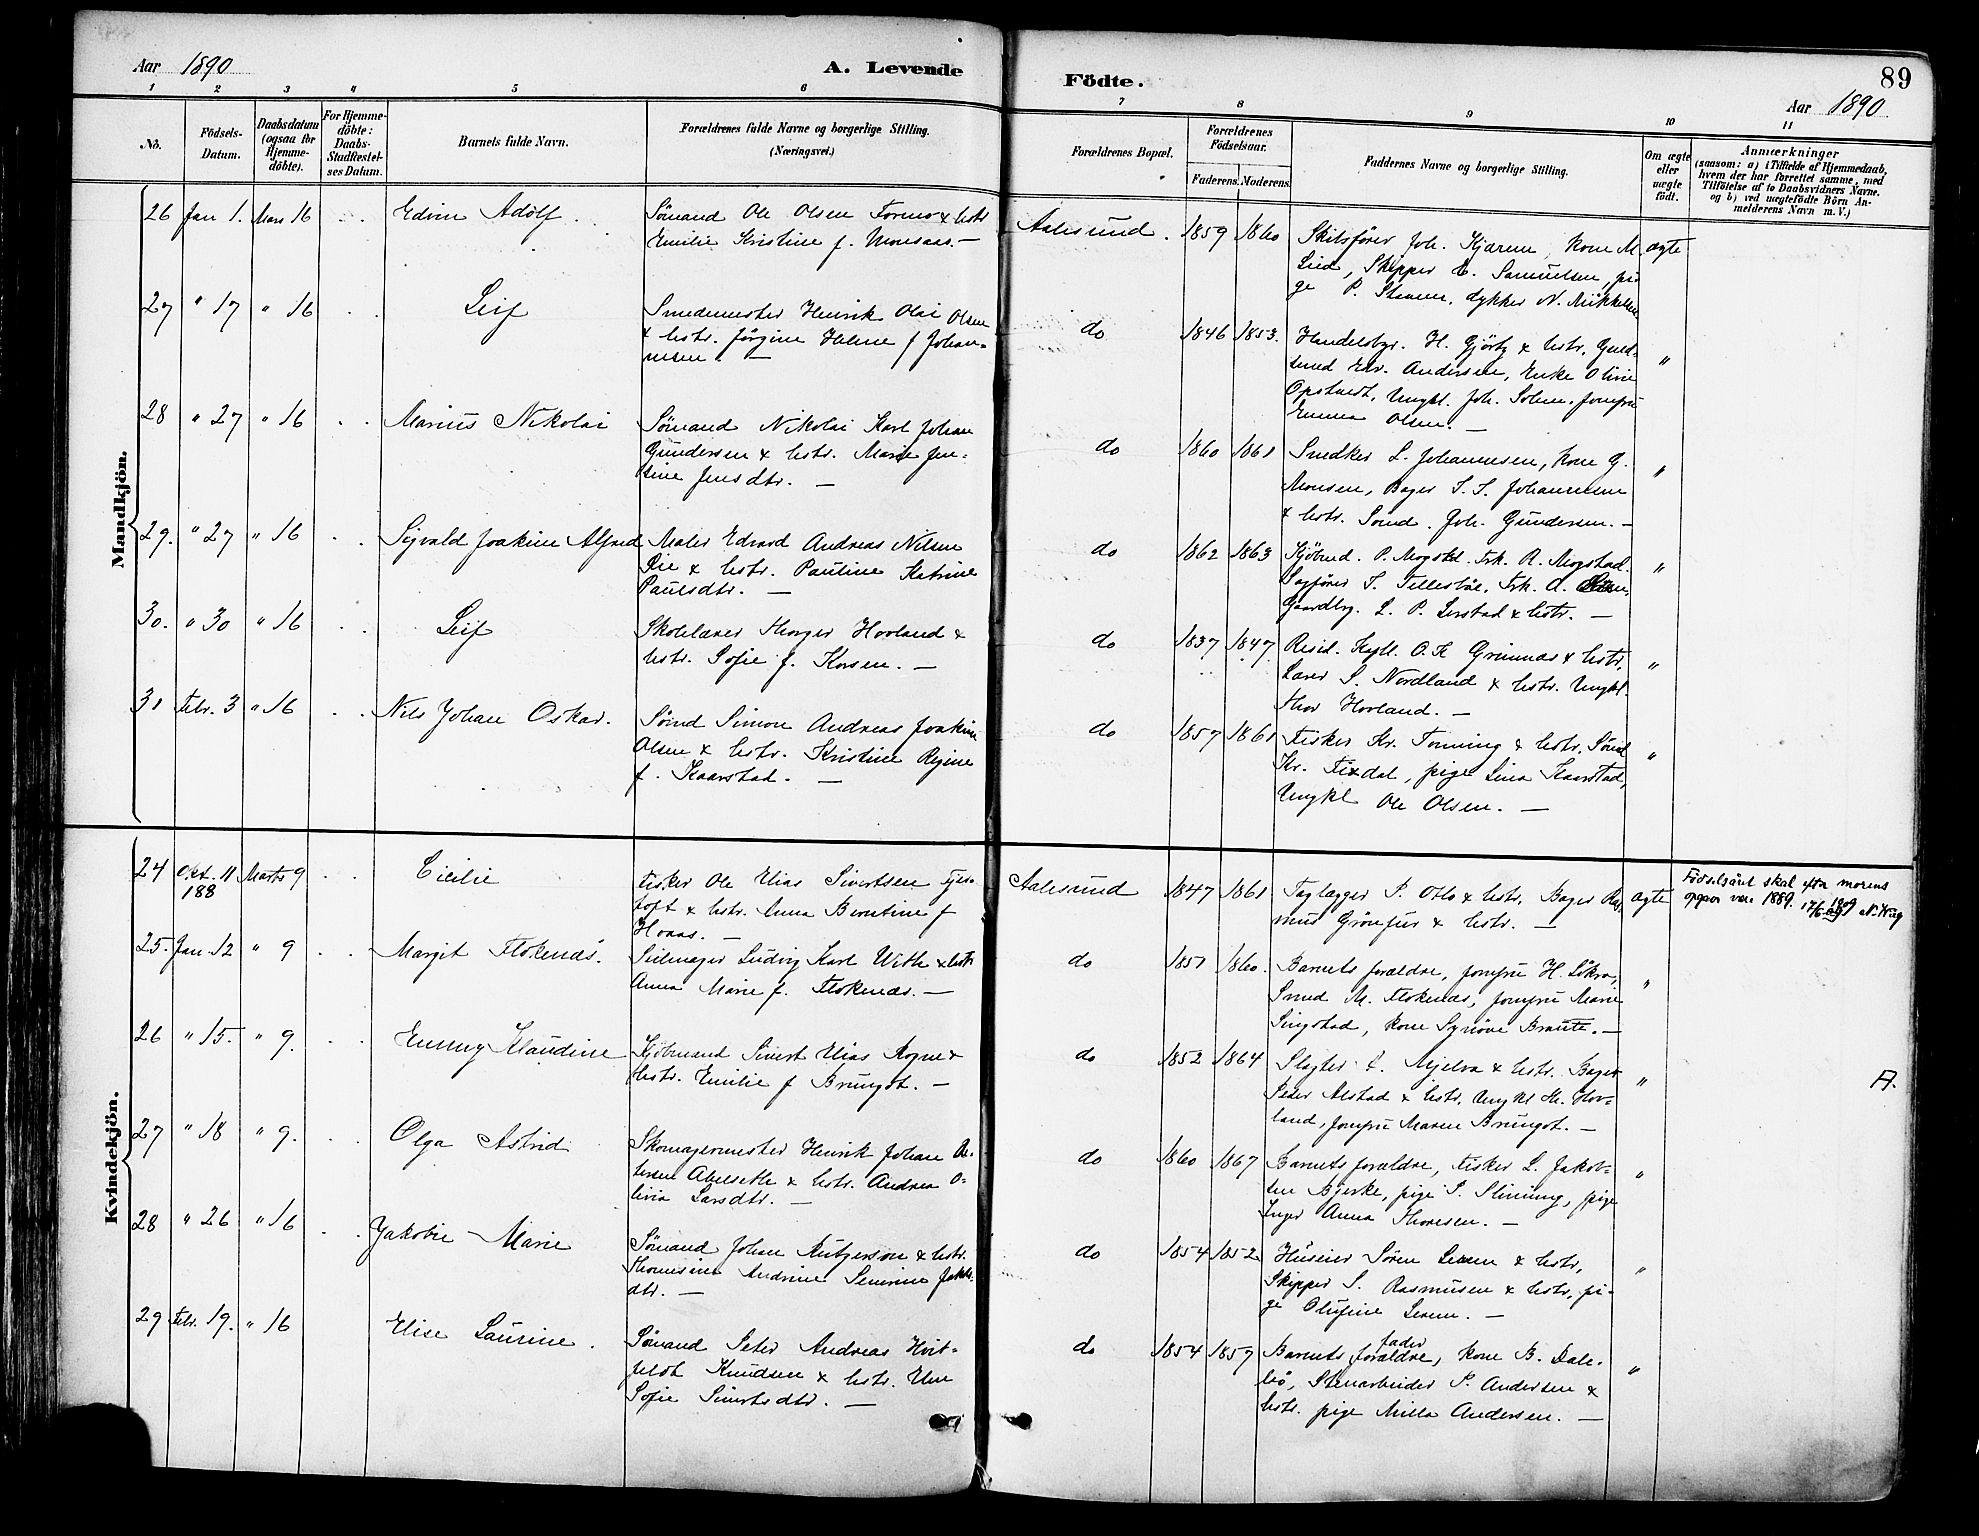 Aar 1890
A. Levende
Födte.
89
Aar 1890
1 2 3 4 5 6 7 8 9 10 11
No.
Födsels-Datum.
Daabsdatum (ogsaa for Hjemme-döbte).
For Hjemme-döbte: Daabs-Stadfestel-ses Datum.
Barnets fulde Navn.
Forældrenes fulde Navne og borgerlige Stilling.
(Næringsvei.)
Forældrenes Bopæl.
Forældrenes Födselsaar.
Faderens. Moderens.
Faddernes Navne og borgerlige Stilling.
Om ægte eller uægte födt.
Anmærkninger
(saasom: a) i Tilfælde af Hjemmedaab,
hvem der har forrettet samme, med
Tilföielse af to Daabsvidners Navne.
og b) ved uægtefödte Börn An-
melderens Navn m. V.)
Mandkjön.
26 Jan 1. Mars 16 Edvin Adolf.
Sömand Ole Olsen Formo & hstr
Emilie Kristine f. Monsaas. —
Aalesund. 1859 1860
Skibsförer Joh. Kjærem, kone M.
Lied, Skipper E. Samuelsen, pi-
ge P. Stavem, dykker N. Mikkelsen
ægte
27 " 17 " 16 Leif
Smedemester Henrik Olai Olsen
& hstr. Jörgine Helene f Johan-
nesen. —
do 1846 1853.
Handelsbgr. H. Gjörtz & hstr, Guld-
smed Edv. Andersen, Enke Oline
Opstvedt, Ungkl. Joh. Solem, Jomfru
Emma Olsen. —
"
28 " 27 " 16 Marius Nikolai
Sömand Nikolai Karl Johan
Gundersen & hstr. Marie Jen-
sine Jensdtr. —
do 1860 1861
Snedker L. Johannesen, kone G.
Monsen, Bager S. S. Johannesen
& hstr. Sömd. Joh. Gundersen. —
"
29. " 27 " 16 Sigvald Joakim Alfred
Maler Edvard Andreas Nilsen
& hstr. Pauline Katrine
Paulsdtr. —
do 1862 1863
Kjöbmd. P. Mogstad. Frk. R. Mogstad.
Sagförer S. Tellesbö, Frk. A.
Gaardbr. L. P. Lerstad & hstr. —
"
30. " 30 " 16 Leif
Skolelærer Thorger Hovland &
hstr. Sofie f. Korsen. —
do 1837 1847
Resid. Kapl. O. K Grimnæs & hstr,
Lærer S. Nordland & hstr. Ungkl.
Thor Hovland. —
"
31 Febr. 3 " 16 Nils Johan Oskar.
Sömd Simon Andreas Joakim
Olsen & hstr. Kristine Regine
f. Kaarstad. —
do 1857 1861
Fisker Kr. Tonning & hstr. Sömd
Kr. Fixdal, pige Lina Kaarstad,
Ungkl Ole Olsen. —
"
Kvindekjön.
24 Okt. 11 188 Marts 9 Cicilie
Fisker Ole Elias Sivertsen Fjør-
toft & hstr. Anna Berntine f
Hovas. —
Aalesund 1847 1861
Taglægger P. Otto & hstr. Bager Ras-
mus Grönfur & hstr. —
ægte
Födselsåret skal efter morens
opgave være 1889. 17/6 1909
25. Jan. 12 " 9 Margit Flokenæs.
Seilmager Ludvig Karl With & hstr
Anna Marie f. Flokenæs. —
do 1851 1860.
Barnets forældre, jomfru H. Lökra,
Smed M. Flokenæs, jomfru Marie
Singstad, kone Synöve Braute. —
"
26 " 15. " 9. Emmy Klaudine
Kjöbmand Sivert Elias Rogne &
Hstr. Emilie f Brungot. —
do 1852 1864
Slagter Mjelva & hstr. Bager
Peder Alstad & hstr. Ungkl M. Hov-
land, jomfru Maren Brungot. —
"
A.
27 " 18 " 9. Olga Astrid
Skomagermester Henrik Johan Pe-
tersen Abelseth & hstr. Andrea O-
livia Larsdtr. —
do 1860 1867
Barnets forældre, Fisker L. Jakob-
sen Bjerke, pige S. Slinning, pige
Inger Anna Thoresen. —
"
28 " 26 " 16 Jakobie Marie
Sömand Johan Rutgerson & hstr.
Thomine Andrine Severine Jakobs-
dtr. —
do 1854 1852
Huseier Sören Lerem & hstr,
Skipper S. Rasmusen & hstr, pi-
ge Olufine Lerem. —
"
29 Febr. 19. " 16 Elise Laurine.
Sömand Peter Andreas Hvit-
feldt Knudsen & hstr. Une
Sofie Sivertsdtr. —
do 1854 1857
Barnets fader
forældre, kone B. Dale-
bö, Stenarbeider P. Andersen &
hstr. pige Milla Andersen. —
"